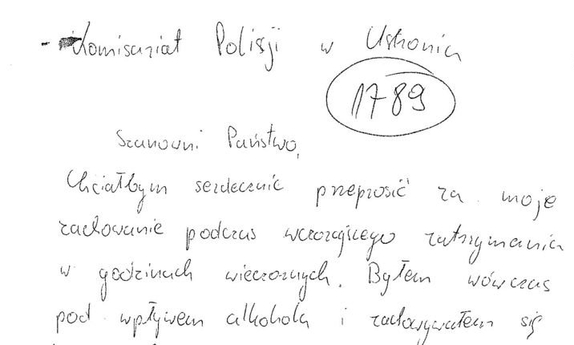 - Komisariat Policji w Ustroniu
1789
Szanowni Państwo,
Chciałbym serdecznie przeprosić za moje
zachowanie podczas wczorajszego zatrzymania
w godzinach wieczornych. Byłem wówczas
pod wpływem alkoholu i zachowywałem się